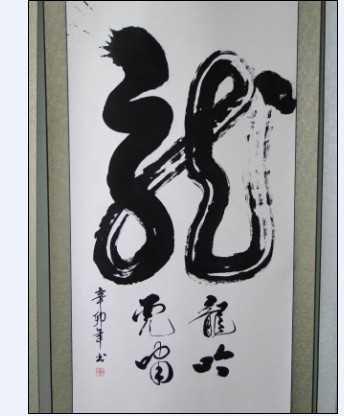 龍
龍吟
虎嘯
辛卯年書